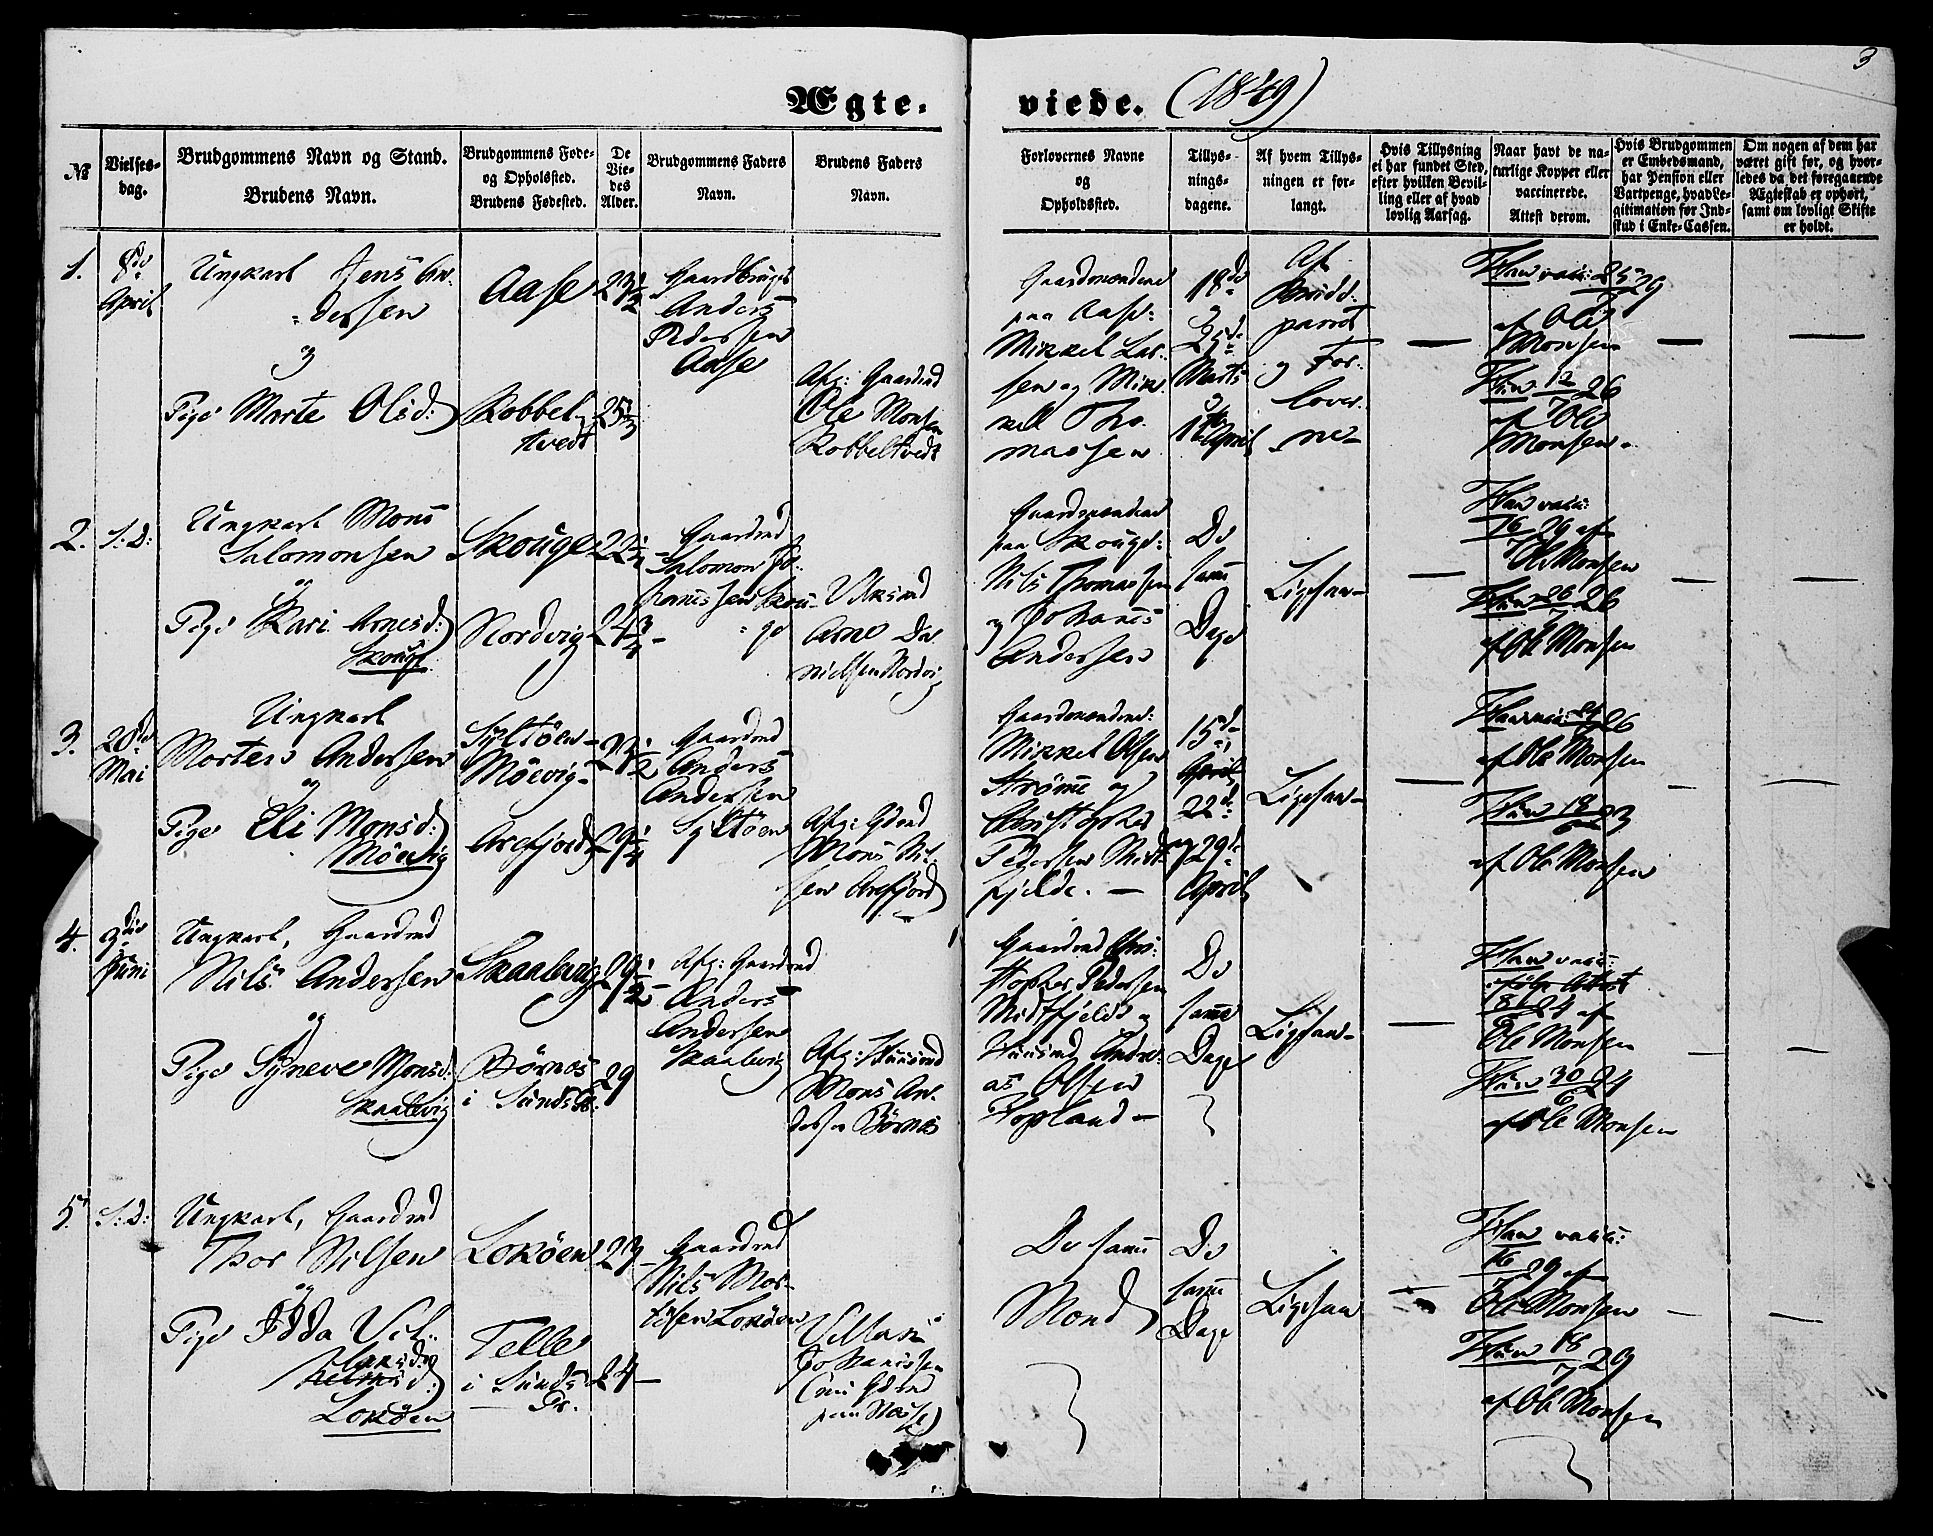 3
Ægte-viede. (1849)
№
Vielses-
dag.
Brudgommens Navn og Stand.
Brudens Navn.
Brudgommens Føde-
og Opholdssted.
Brudens Fødested.
De
Vie-
des
Alder.
Brudgommens Faders
Navn.
Brudens Faders
Navn.
Forlovernes Navne
og
Opholdssted.
Tillys-
nings-
dagene.
Af hvem Tillys-
ningen er for-
langt.
Hvis Tillysning
ei har fundet Sted,
efter hvilken Bevil-
ling eller af hvad
lovlig Aarsag.
Naar havt de na-
turlige Kopper eller
vaccinerede.
Attest derom.
Hvis Brudgommen
er Embedsmand,
har Pension eller
Vartpenge, hvad Le-
gitimation for Ind-
skud i Enke-Cassen.
Om nogen af dem har
været gift før, og hvor-
ledes da det foregaaende
Ægteskab er ophørt,
samt om lovligt Skifte
er holdt.
1.
8de
April
Ungkarl Jens An-
dersen
og
Pige Marte Olsd:
Aase
Kobbel-
tvedt
23½
25⅔
Gaardbruger
Anders
Pedersen
Aase
Afg: Gaardmd
Ole Monsen
Kobbeltvedt
Gaardmændene
paa Aase:
Mikkel Lar-
sen og Mik-
kel Tho-
massen
18de
25de
Marts
1ste April
Af
Brude-
parret
og For-
lover-
ne
Han vacc: 25 29
af Ole
Monsen
Hun 12/7 26
af Ole
Monsen
2.
S: D:
Ungkarl Mons
Salomonsen
og
Pige Kari Arnesd:
Skouge
Skouge
Nordvig
22½
24¾
Gaardmd
Salomon Jo-
hannessen Skou-
ge
Arne Da-
nielsen Nordvig
Gaardmændene
paa Skouge:
Nils Thomassen
og Johannes
Andersen
De
samme
Dage
Ligesaa
Han vacc:
16/7 29 af
Ole Monsen
Hun 26/7 26
af Ole Monsen
3.
28de
Mai
Ungkarl
Morten Andersen
og
Pige Eli Monsd:
Møevig
Syltøen
Møevig
Arefjord
23½
29¼
Gaardmd
Anders
Andersen
Syltøen
Afg: Gdmd
Mons Nil-
sen Arefjord
Gaardmændene:
Mikkel Olsen
Strømme og
Christopher
Pedersen Midt-
fjelde.
15de
April
22de
og 29de
April
Ligesaa
Han vacc: 24 26
af Ole Monsen
Hun 18/6 23
af Ole Monsen
4.
9de
Juni
Ungkarl, Gaardmd
Nils Andersen
og
Pige Syneve Monsd:
Skaalevig
Skaalevig
Børnes
i Sunds Pr:
29½
29
Afg: Gaardmd
Anders
Andersen
Skaalevig
Afg: Huusmd
Mons An-
dersen Børnes
Gaardmd Chri-
stopher Pedersen
Midtfjelde og
Huusmd Andre-
as Olsen
Fogland
De
samme
Dage
Ligesaa
Han vacc:
ifølge Attest
18 24 af
Ole Monsen
Hun 30/6 24
af Ole Monsen
5.
S: D:
Ungkarl, Gaardmd
Thor Nilsen
og
Pige Idda Vil-
Lokøen
Lokøen
Telle
i Sunds
Pr.
23
24
Gaardmd
Nils Mor-
tensen Lokøen
Johannessen
De samme
Mænd
De
samme
Dage
Ligesaa
Han vacc:
16/7 29 af
Ole Monsen
Hun 18/7 29
af Ole Monsen